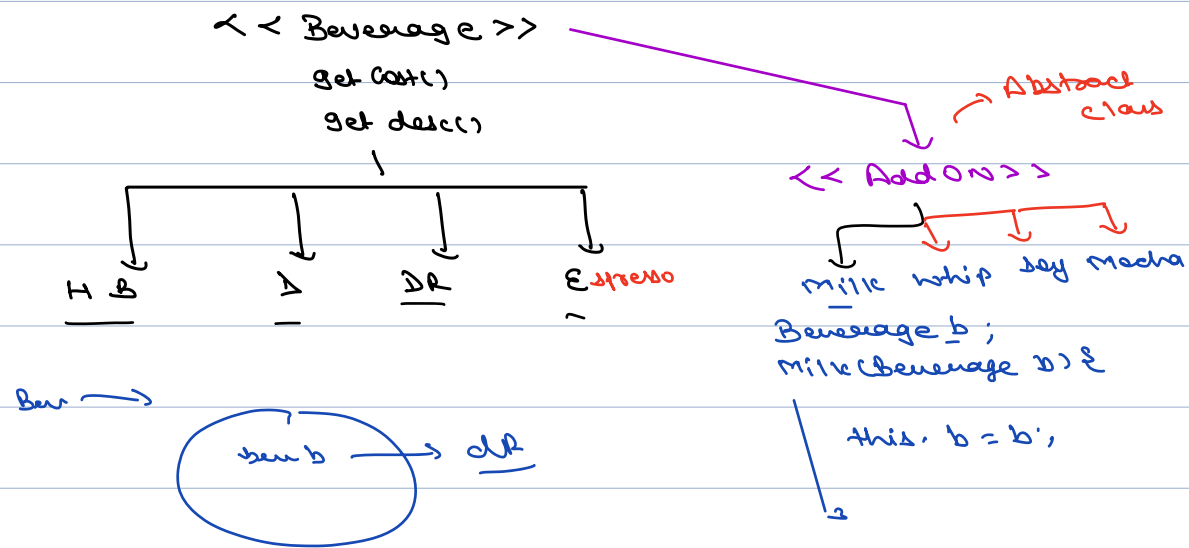 << Beverage >>
get Cost()
get desc()
Abstract
Class
<< Add ON >>
H B D DR Espresso
Milk whip Soy Mocha
Beverage b ;
Milk(Beverage b) {
this. b = b ;
}
Bev
bev b dR